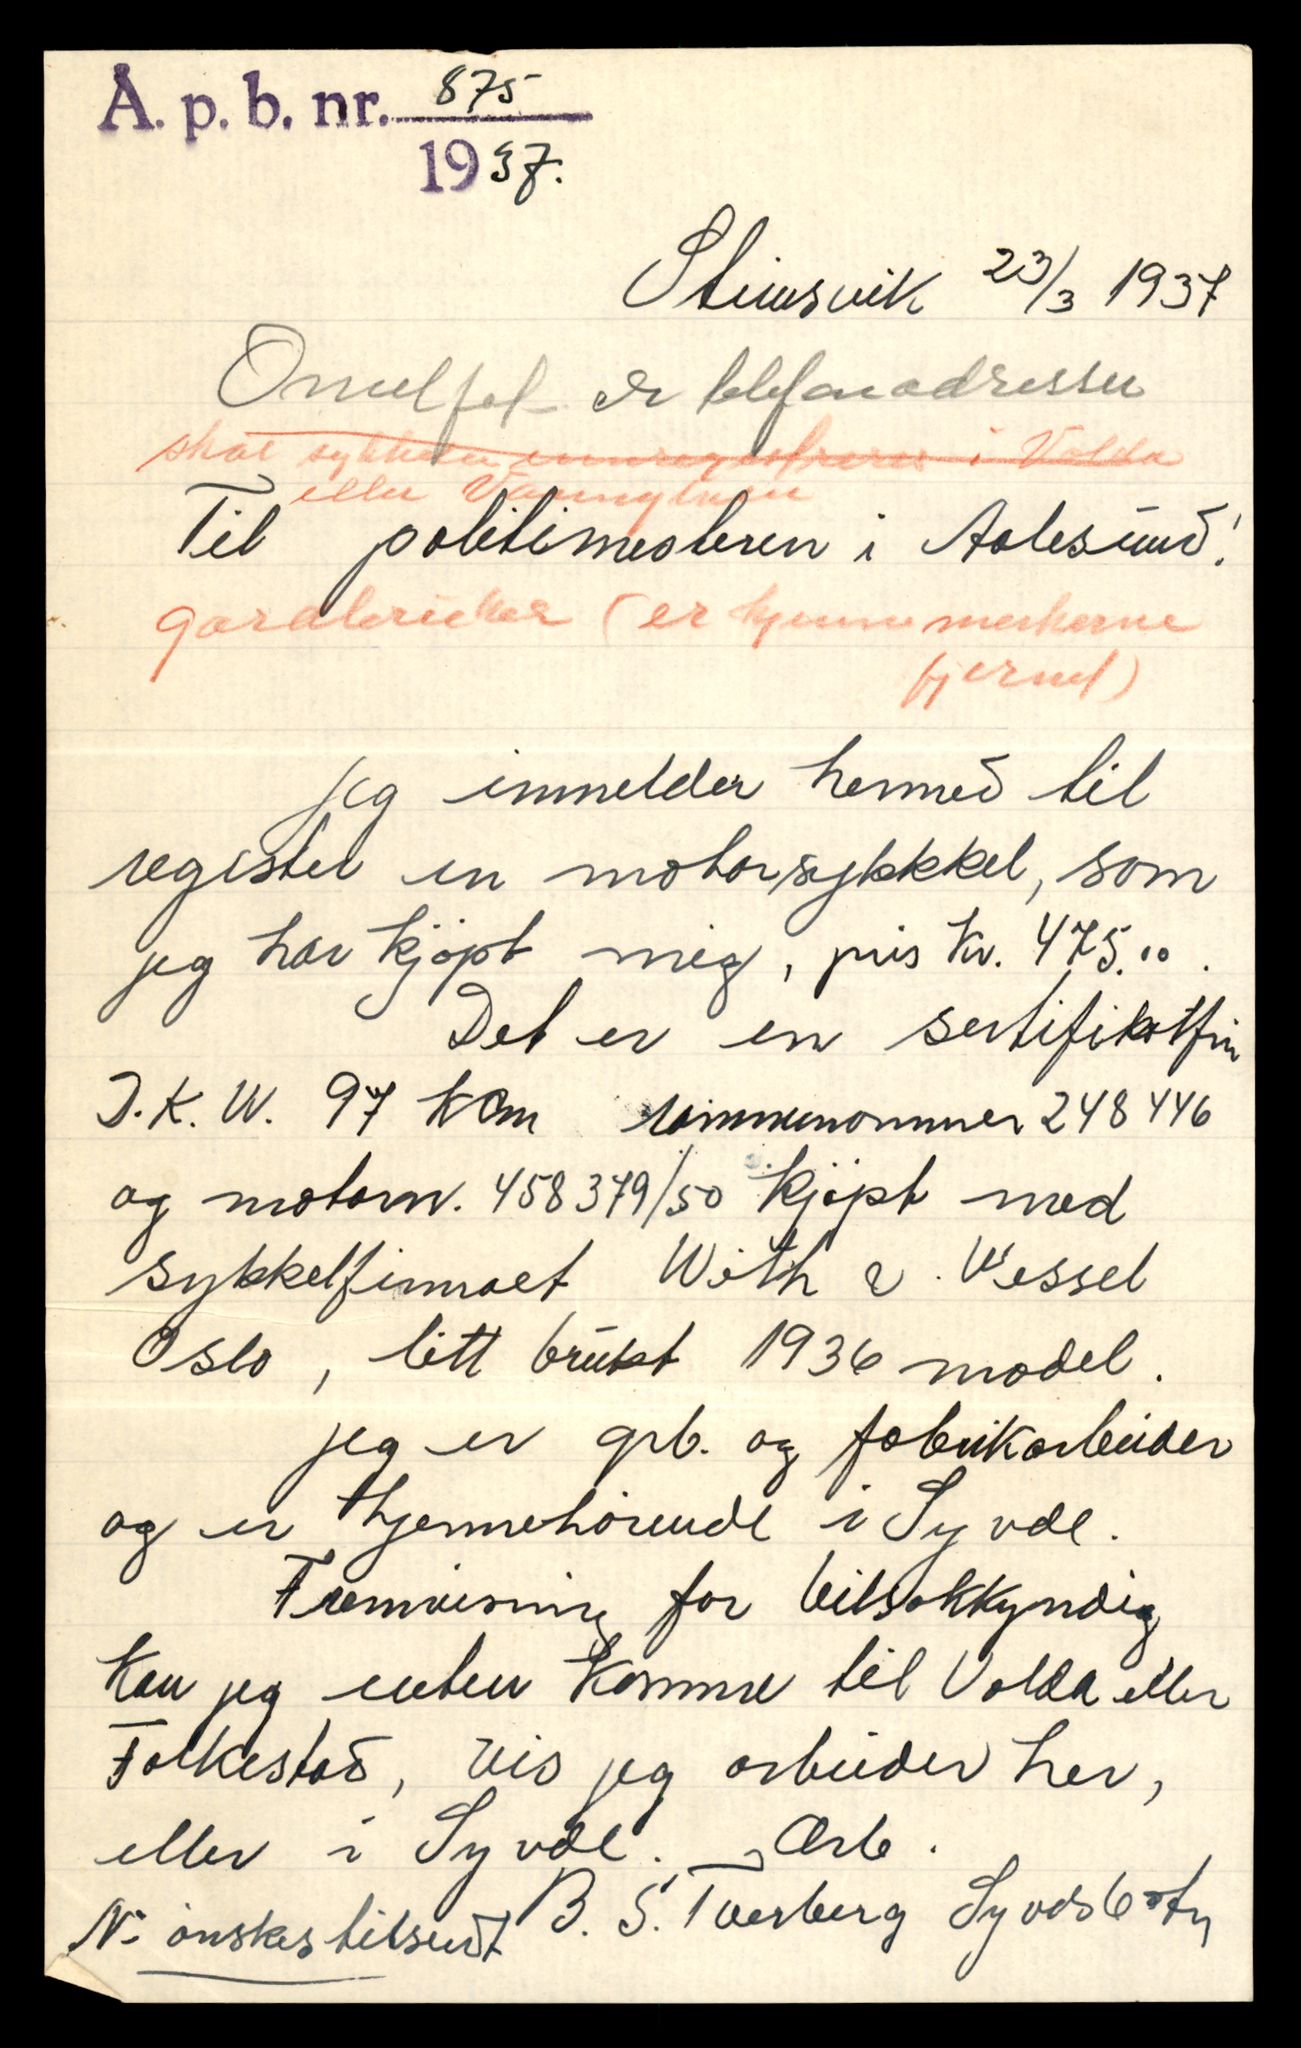 Å. p. b. nr. 875
1937.
Stimsvik 23/3 1937
er telefonadressen
skal sykkelen innregistreres i Volda
eller
Til politimesteren i Aalesund!
(er kjennemerkerne
fjernet)
jeg innmelder hermed til
register en motorsykkkel, som
jeg har kjøpt mig, pris kr. 475.00.
Det er en sertifikatfri
D.K.W. 97 kcm rammenommer 248446
og motornr. 458379/50 kjøpt med
sykkelfirmaet With & Wessel
Oslo, litt brukt 1936 model.
jeg er grb. og fabrikarbeider
og er hjemmehørende i Syvde.
Fremvisning for bilsakkyndig
kan jeg enten komme til Volda eller
Folkestad, vis jeg arbeider her,
eller i Syvde. Ærb.
B. S. Tverberg Syvdsbotn
Nr ønskes tilsendt